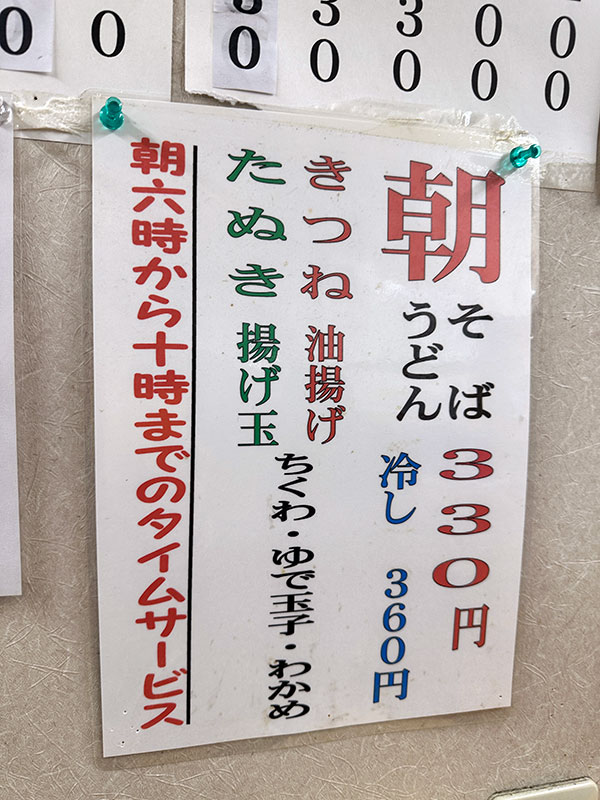 朝
そば
うどん
330円
冷し 360円
きつね 油揚げ
たぬき 揚げ玉
ちくわ・ゆで玉子・わかめ
朝六時から十時までのタイムサービス